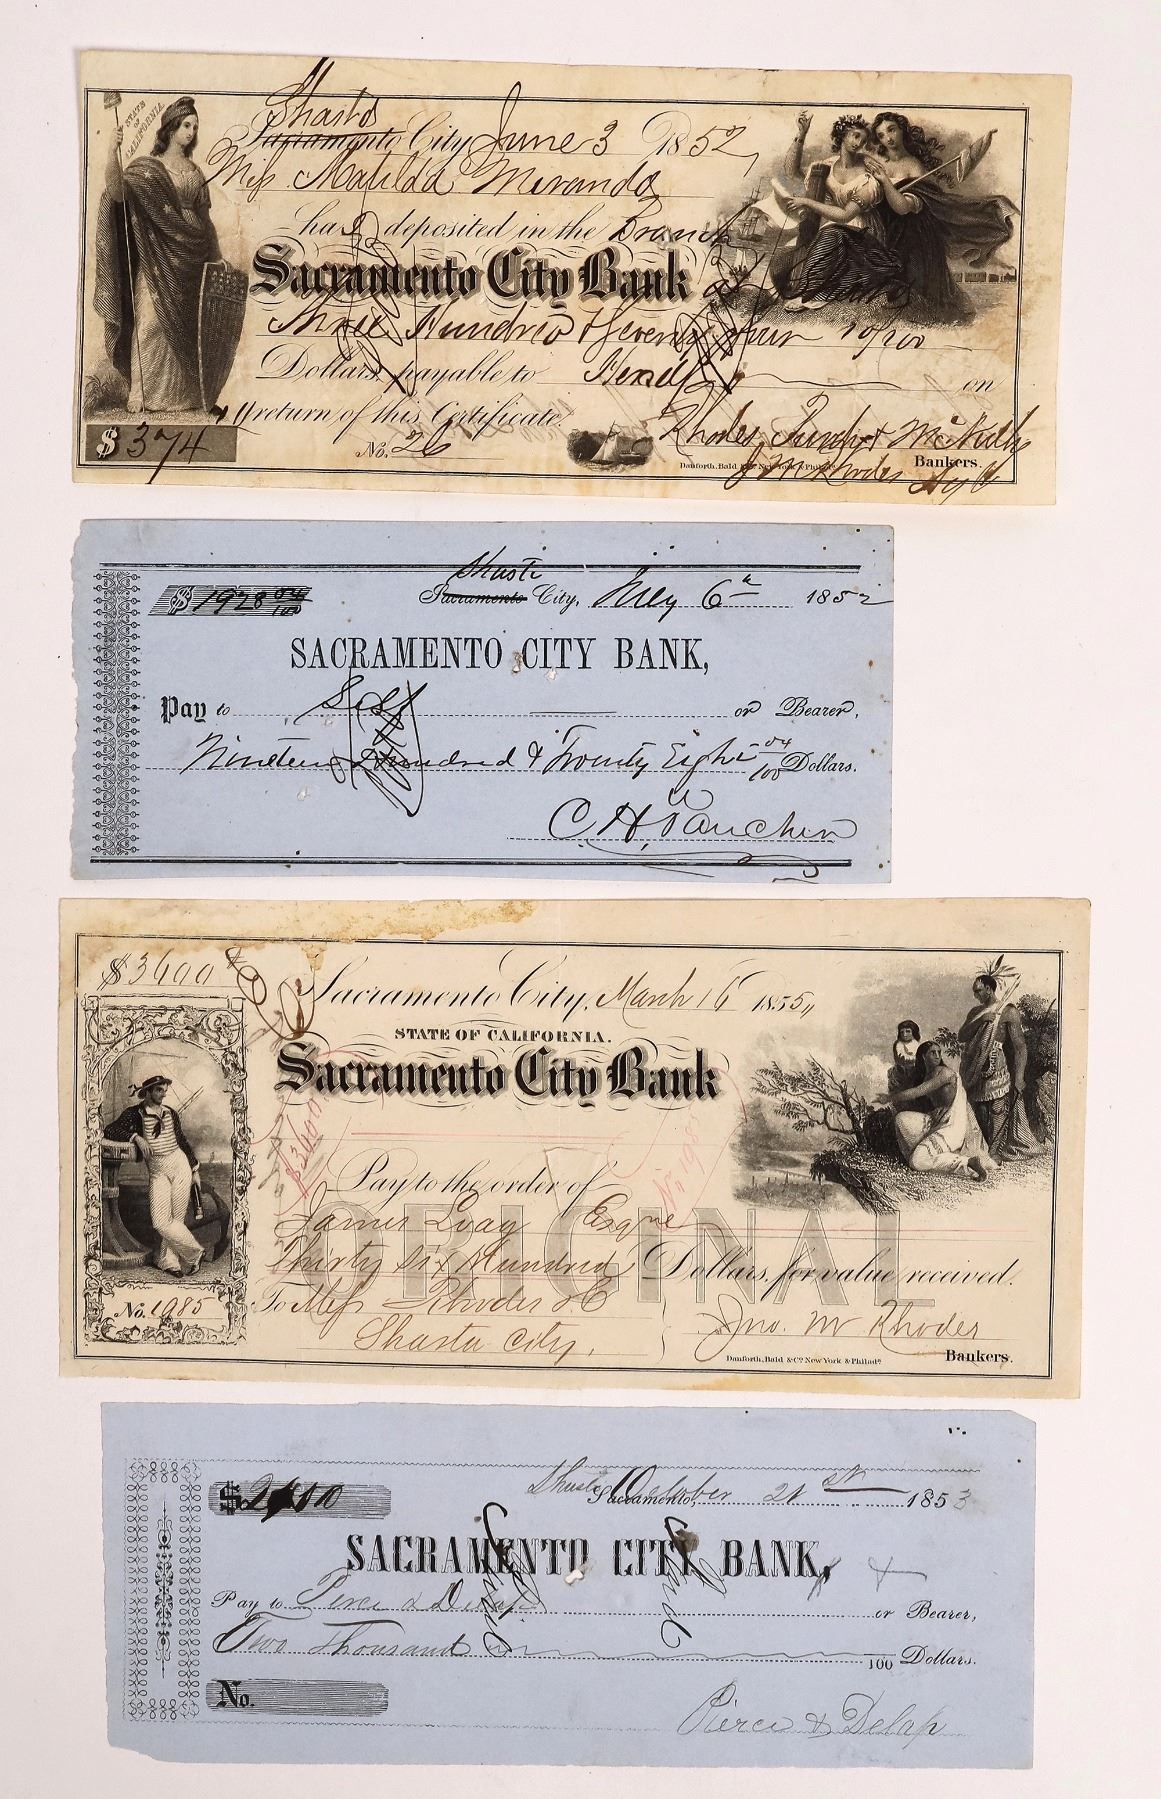 STATE OF CALIFORNIA
Shasta
Sacramento City June 3 1852,
Miss Matilda Miranda
has deposited in the Branch
Sacramento City Bank at Shasta
Three Hundred & Seventy four 10/100
Dollars, payable to Herself on
return of this Certificate.
$374
No. 26
Rhodes, Purdy & McNulty
Danforth, Bald & Co. New York & Philada.
Bankers.
J M Rhodes Agt
Shasta
$1928 04/100
Sacramento City, May 6th 1852
SACRAMENTO CITY BANK,
Pay to Self or Bearer,
Nineteen Hundred & Twenty Eight 04/100 Dollars.
$3600
Sacramento City, March 16 1855,,
STATE OF CALIFORNIA.
Sacramento City Bank
$3600
No 1985
Pay to the order of
ORIGINAL
James Loag Esqre
Thirty six Hundred Dollars, for value received.
No. 1985
To Mess Rhodes & Co
Shasta City.
Jno. M Rhodes
Danforth, Bald & Co. New York & Philada.
Bankers.
Shasta
Sacramento, October 21st 1853
SACRAMENTO CITY BANK,
Pay to Pierce & Delap or Bearer,
Two Thousand 100 Dollars.
No.
Pierce & Delap